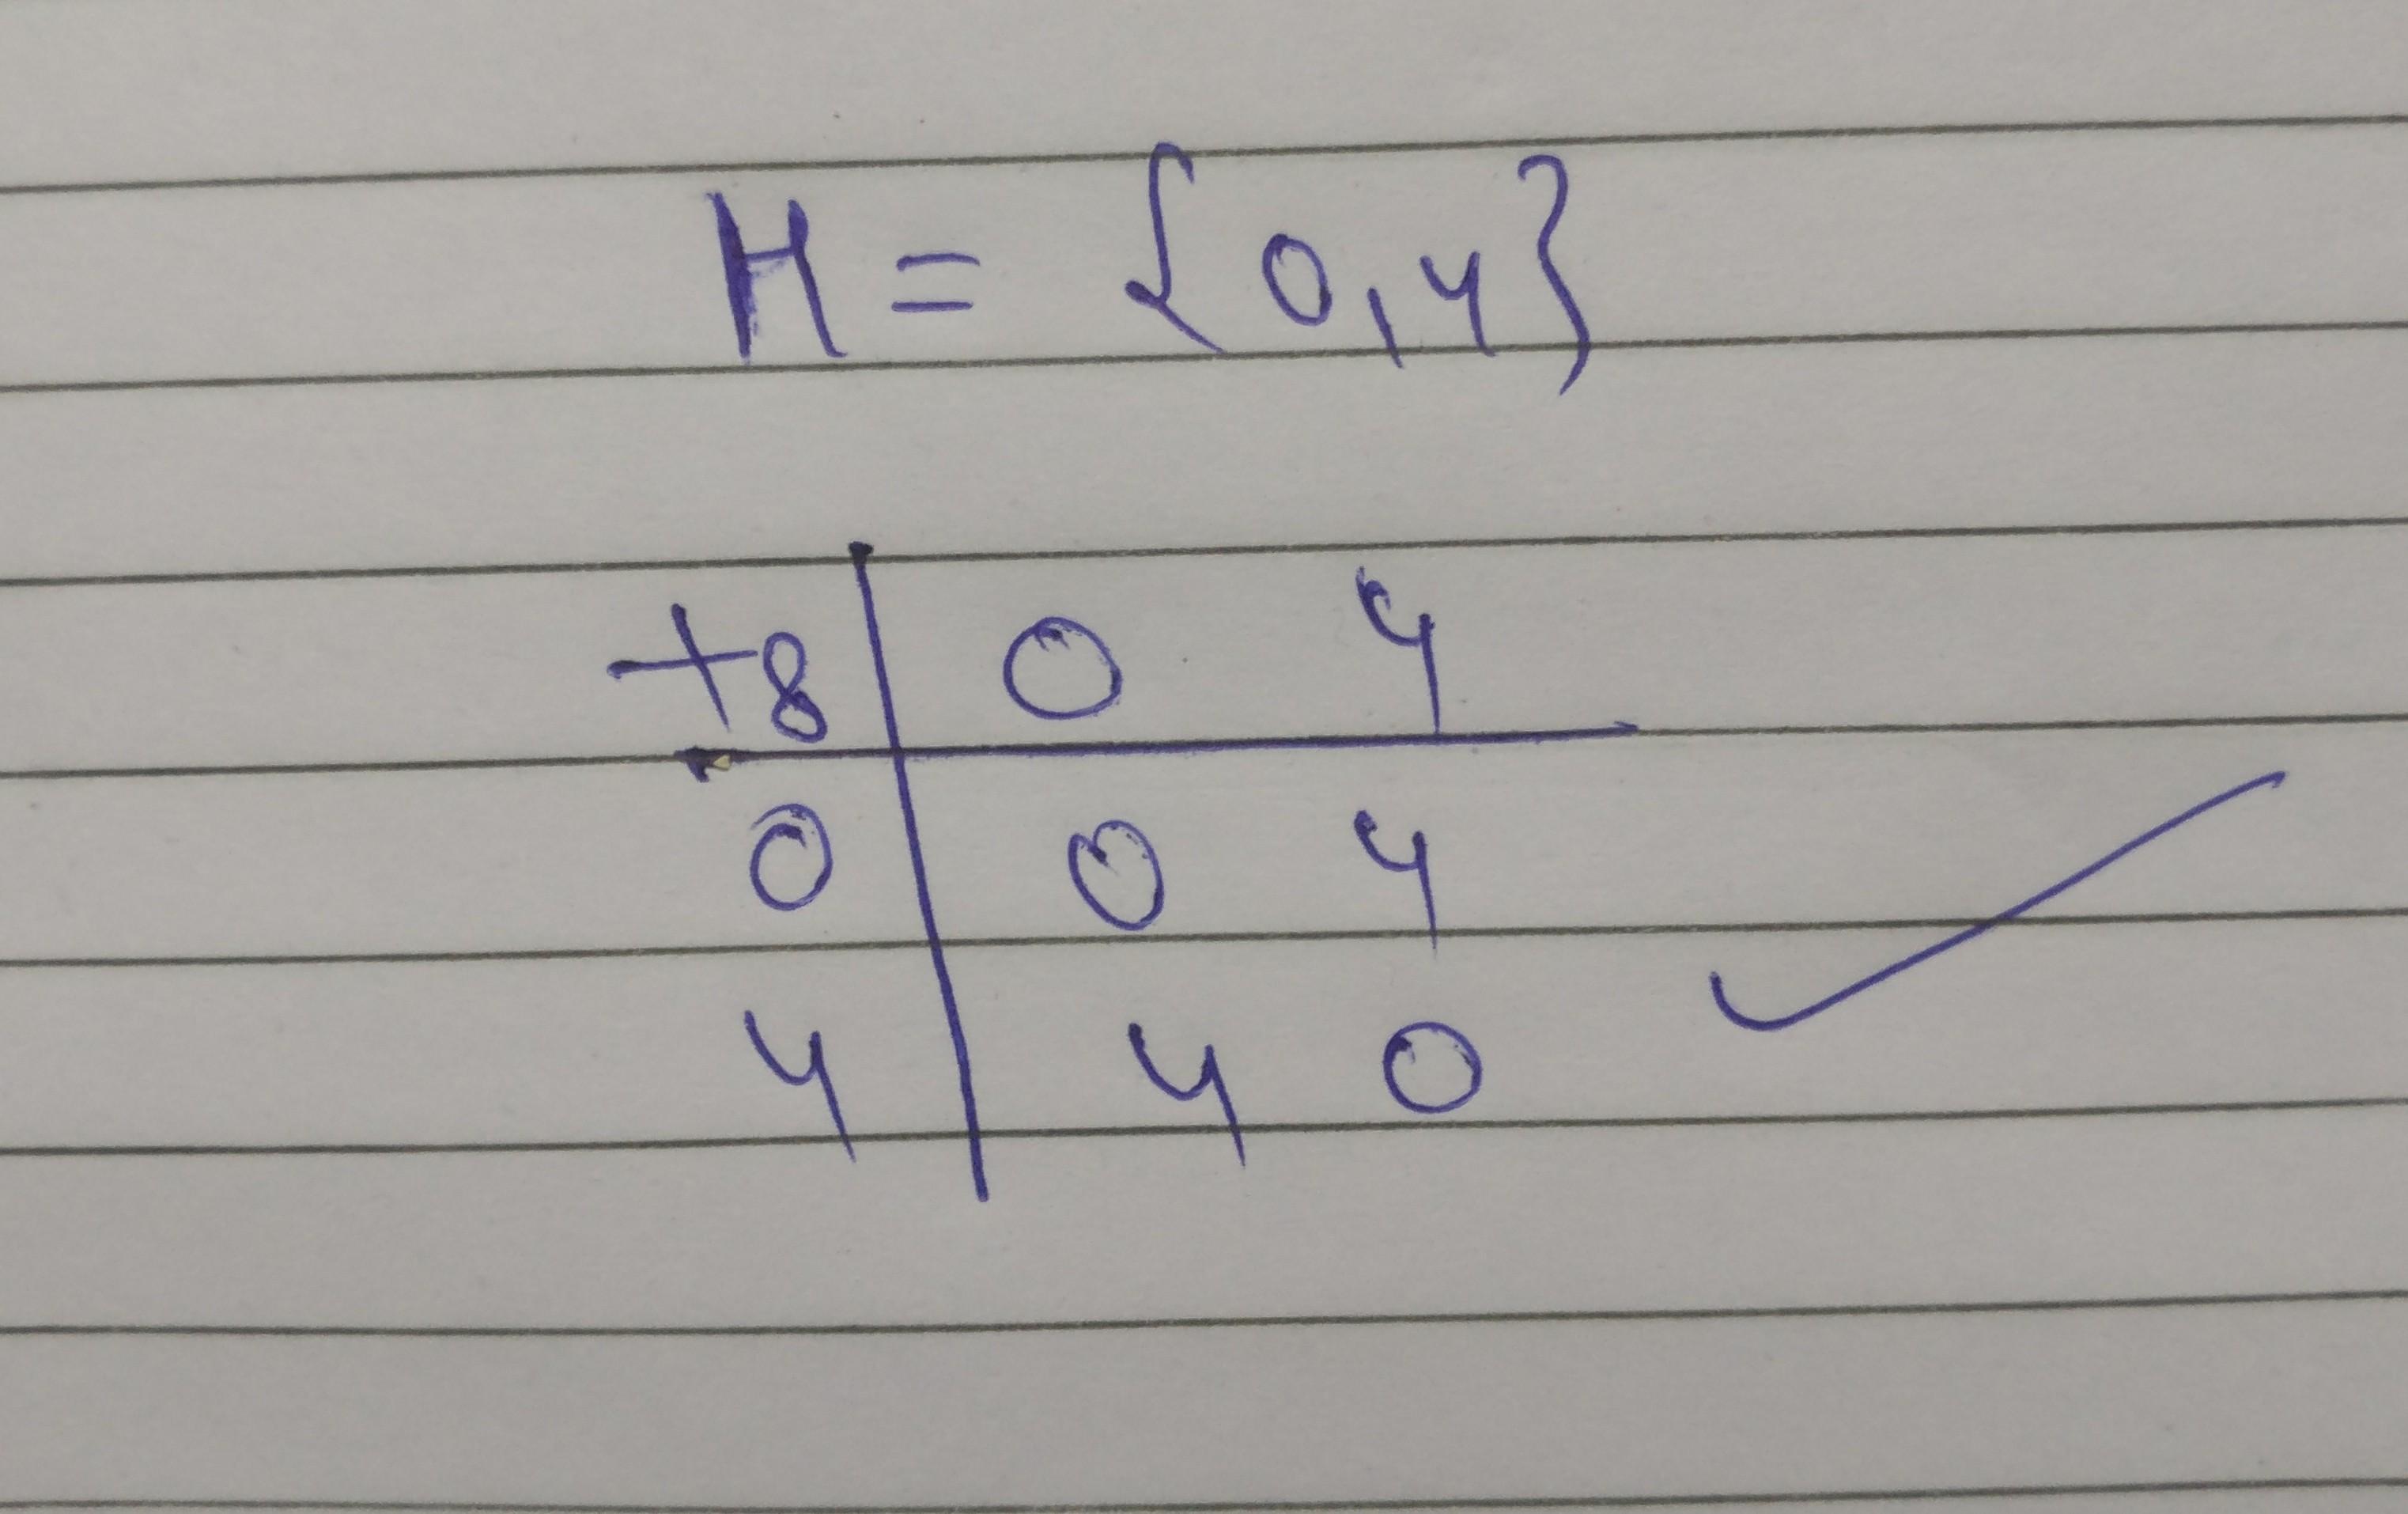 H = {0,4}
+8 | 0 4
0 | 0 4
4 | 4 0 ✓